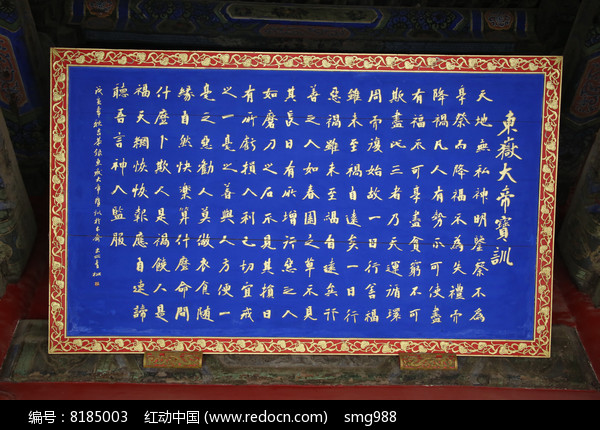 東嶽大帝寶訓
天地無私神明鑒察不為
享祭而降福不為失禮而
降禍凡人有勢不可使盡
有福不可享盡貧窮不可
欺盡此三者乃天運循環
周而復始故一日行善福
雖未至禍自遠矣一日行
惡禍雖未至福自遠矣行
善之人如春園之草不見
其長日有所增行惡之人
如磨刀之石不見其損日
有所虧損人利己切宜戒
之一毫之善與人方便一
毫之惡勸人莫做衣食隨
緣自然快樂算什麼命問
什麼卜欺人是禍饒人是
福天網恢恢報應自速諦
聽吾言神人監服
编号：8185003 红动中国 (www.redocn.com) smg988